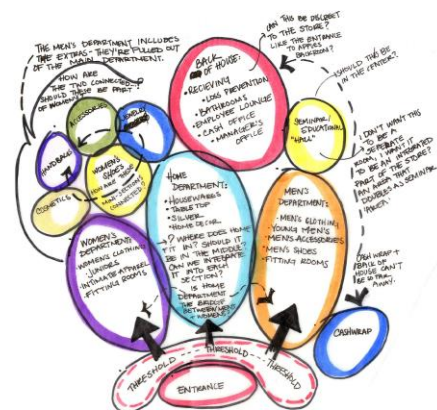 THE MEN'S DEPARTMENT INCLUDES
THE EXTRAS - THEY'RE PULLED OUT
OF THE MAIN DEPARTMENT.
HOW ARE
THE TWO CONNECTED..?
SHOULD THESE BE PART
OF WOMEN'S?
ACCESSORIES
JEWELRY
HANDBAGS
COSMETICS
WOMEN'S
SHOES
HOW ARE THESE
MINI-SECTIONS
CONNECTED?
BACK
OF HOUSE:
• RECIEVING
• LOSS PREVENTION
• BATHROOMS
• EMPLOYEE LOUNGE
• CASH OFFICE
• MANAGER'S
OFFICE
CAN THIS BE DISCREET
TO THE STORE?
LIKE THE ENTRANCE
TO APPLES
BACKROOM?
SHOULD THIS BE
IN THE CENTER?
SEMINAR/
EDUCATIONAL
"HALL"
I DON'T WANT THIS
TO BE A
SEPERATE
ROOM, I WANT IT
TO BE AN INTEGRATED
PART OF THE STORE.
AN AREA THAT
DOUBLES AS SEMINAR
AREA.
HOME
DEPARTMENT:
• HOUSEWARES
• TABLETOP
• SILVER
• HOME DECOR
? WHERE DOES HOME
FIT IN? SHOULD IT
BE IN THE MIDDLE?
CAN WE INTEGRATE
IT INTO EACH
SECTION?
IS HOME
DEPARTMENT
THE BRIDGE
BETWEEN MEN'S
WOMEN'S?
MEN'S
DEPARTMENT:
• MEN'S CLOTHING
• YOUNG MEN'S
• MEN'S ACCESSORIES
• MEN'S SHOES
• FITTING ROOMS
WOMEN'S
DEPARTMENT:
• WOMEN'S CLOTHING
• JUNIORS
• INTIMATE APPAREL
• FITTING ROOMS
CASH WRAP +
BACK OF
HOUSE CAN'T
BE TO FAR
AWAY.
CASHWRAP
THRESHOLD
THRESHOLD
THRESHOLD
ENTRANCE